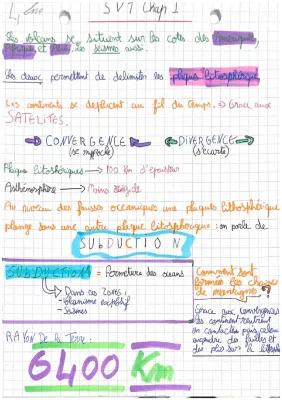 Lire
SVT Chap 1
Les volcans se situent sur les cotes des
et les seismes aussi.
Les deux permettent de delimiter les plaques litosphérique
Les continents se deplacent au fil du temps. → Grace aux
SATELITES.
CONVERGENCE DIVERGENCE
(se raproche) (s'ecarte)
Plaques litosphériques → 100 km d'épaisseur
Asthénosphère → Moins rigide
Au niveau des fausses oceaniques une plaques lithosphérique
plonge sous une autre plaque litosphérique: on parle de
SUBDUCTION
SUBDUCTION = Fermeture des oceans
→ Dans ces zones:
- Volcanisme explosif
- Seismes
Comment sont
formées les chaines
de montagnes?
Grace aux convergences
des continents rentrent
en contactes puis cela
engendre des failles et
des plis sur la
RAYON De la Terre:
6400 Km